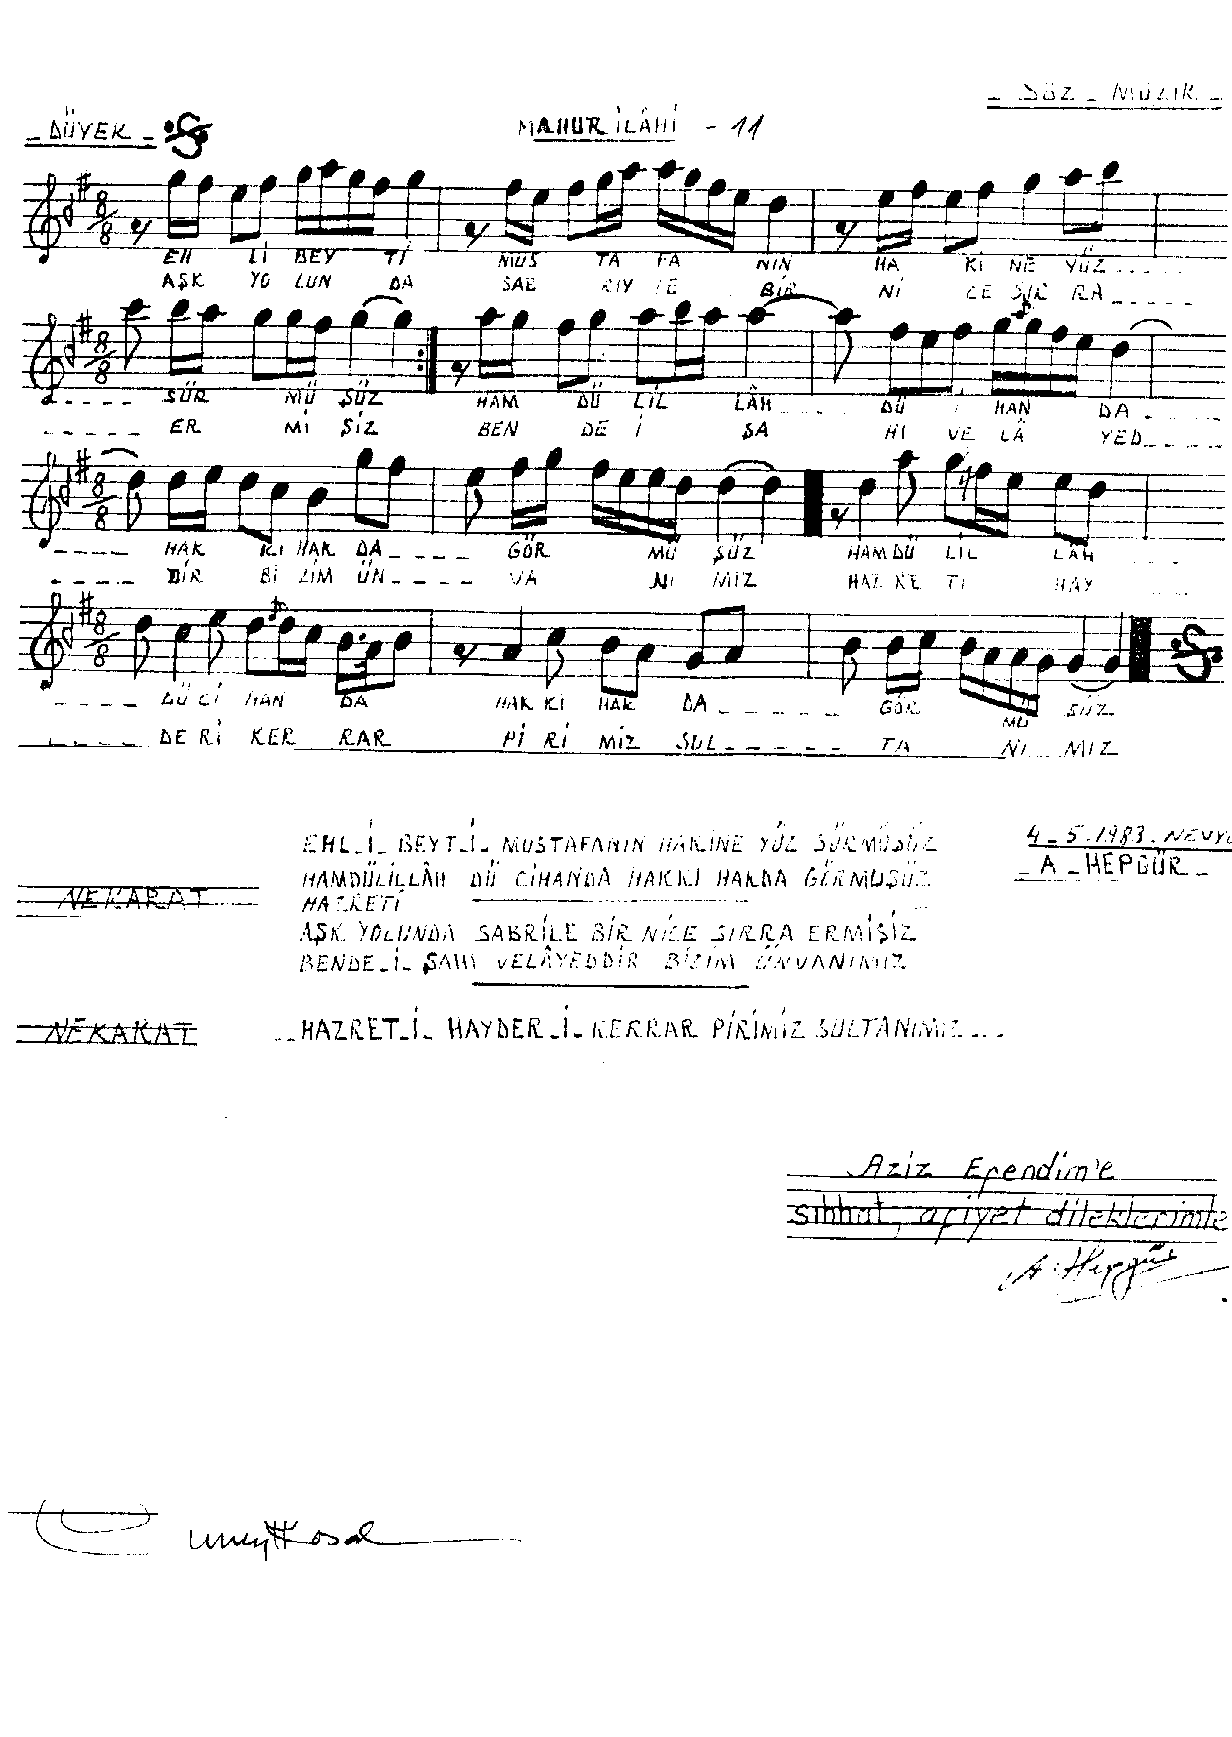 - SÖZ - MÜZİK -
- DÜYEK -
MAHUR İLÂHİ - 11
8/8
EH Lİ BEY Tİ MUS TA FA NIN HA Kİ NE YÜZ -----
AŞK YO LUN DA SAB RİY LE BİR Nİ CE SIR RA -----
8/8
----- SÜR MÜ ŞÜZ HAM DÜ LİL LÂH ---- DÜ İ HAN DA ----
----- ER Mİ ŞİZ BEN DE İ ŞA HI VE LÂ YED ----
8/8
---- HAK KI HAK DA ---- GÖR MÜ ŞÜZ HAM DÜ LİL LÂH
---- DİR Bİ ZİM ÜN ---- VA NI MIZ HAZ RE Tİ HAY ---
8/8
---- DÜ Cİ HAN DA HAK KI HAK DA ------ GÖR MÜ ŞÜZ
---- DE Rİ KER RAR Pİ Rİ MİZ SUL ----- TA NI MIZ
EHL-İ- BEYT-İ- MUSTAFANIN HAKİNE YÜZ SÜRMÜŞÜZ
4-5-1983-NEVYO
HAMDÜLİLLÂH DÜ CİHANDA HAKKI HAKDA GÖRMÜŞÜZ
- A - HEPGÜR -
NEKARAT
HAZRETİ
AŞK YOLUNDA SABRİLE BİR NİCE SIRRA ERMİŞİZ
BENDE-İ- ŞAHI VELÂYEDDİR BİZİM ÜNVANIMIZ
NEKARAT
-- HAZRET-İ- HAYDER-İ- KERRAR PİRİMİZ SULTANIMIZ ---
Aziz Efendim'e
sıhhat, afiyet dileklerimle
A. Hepgür